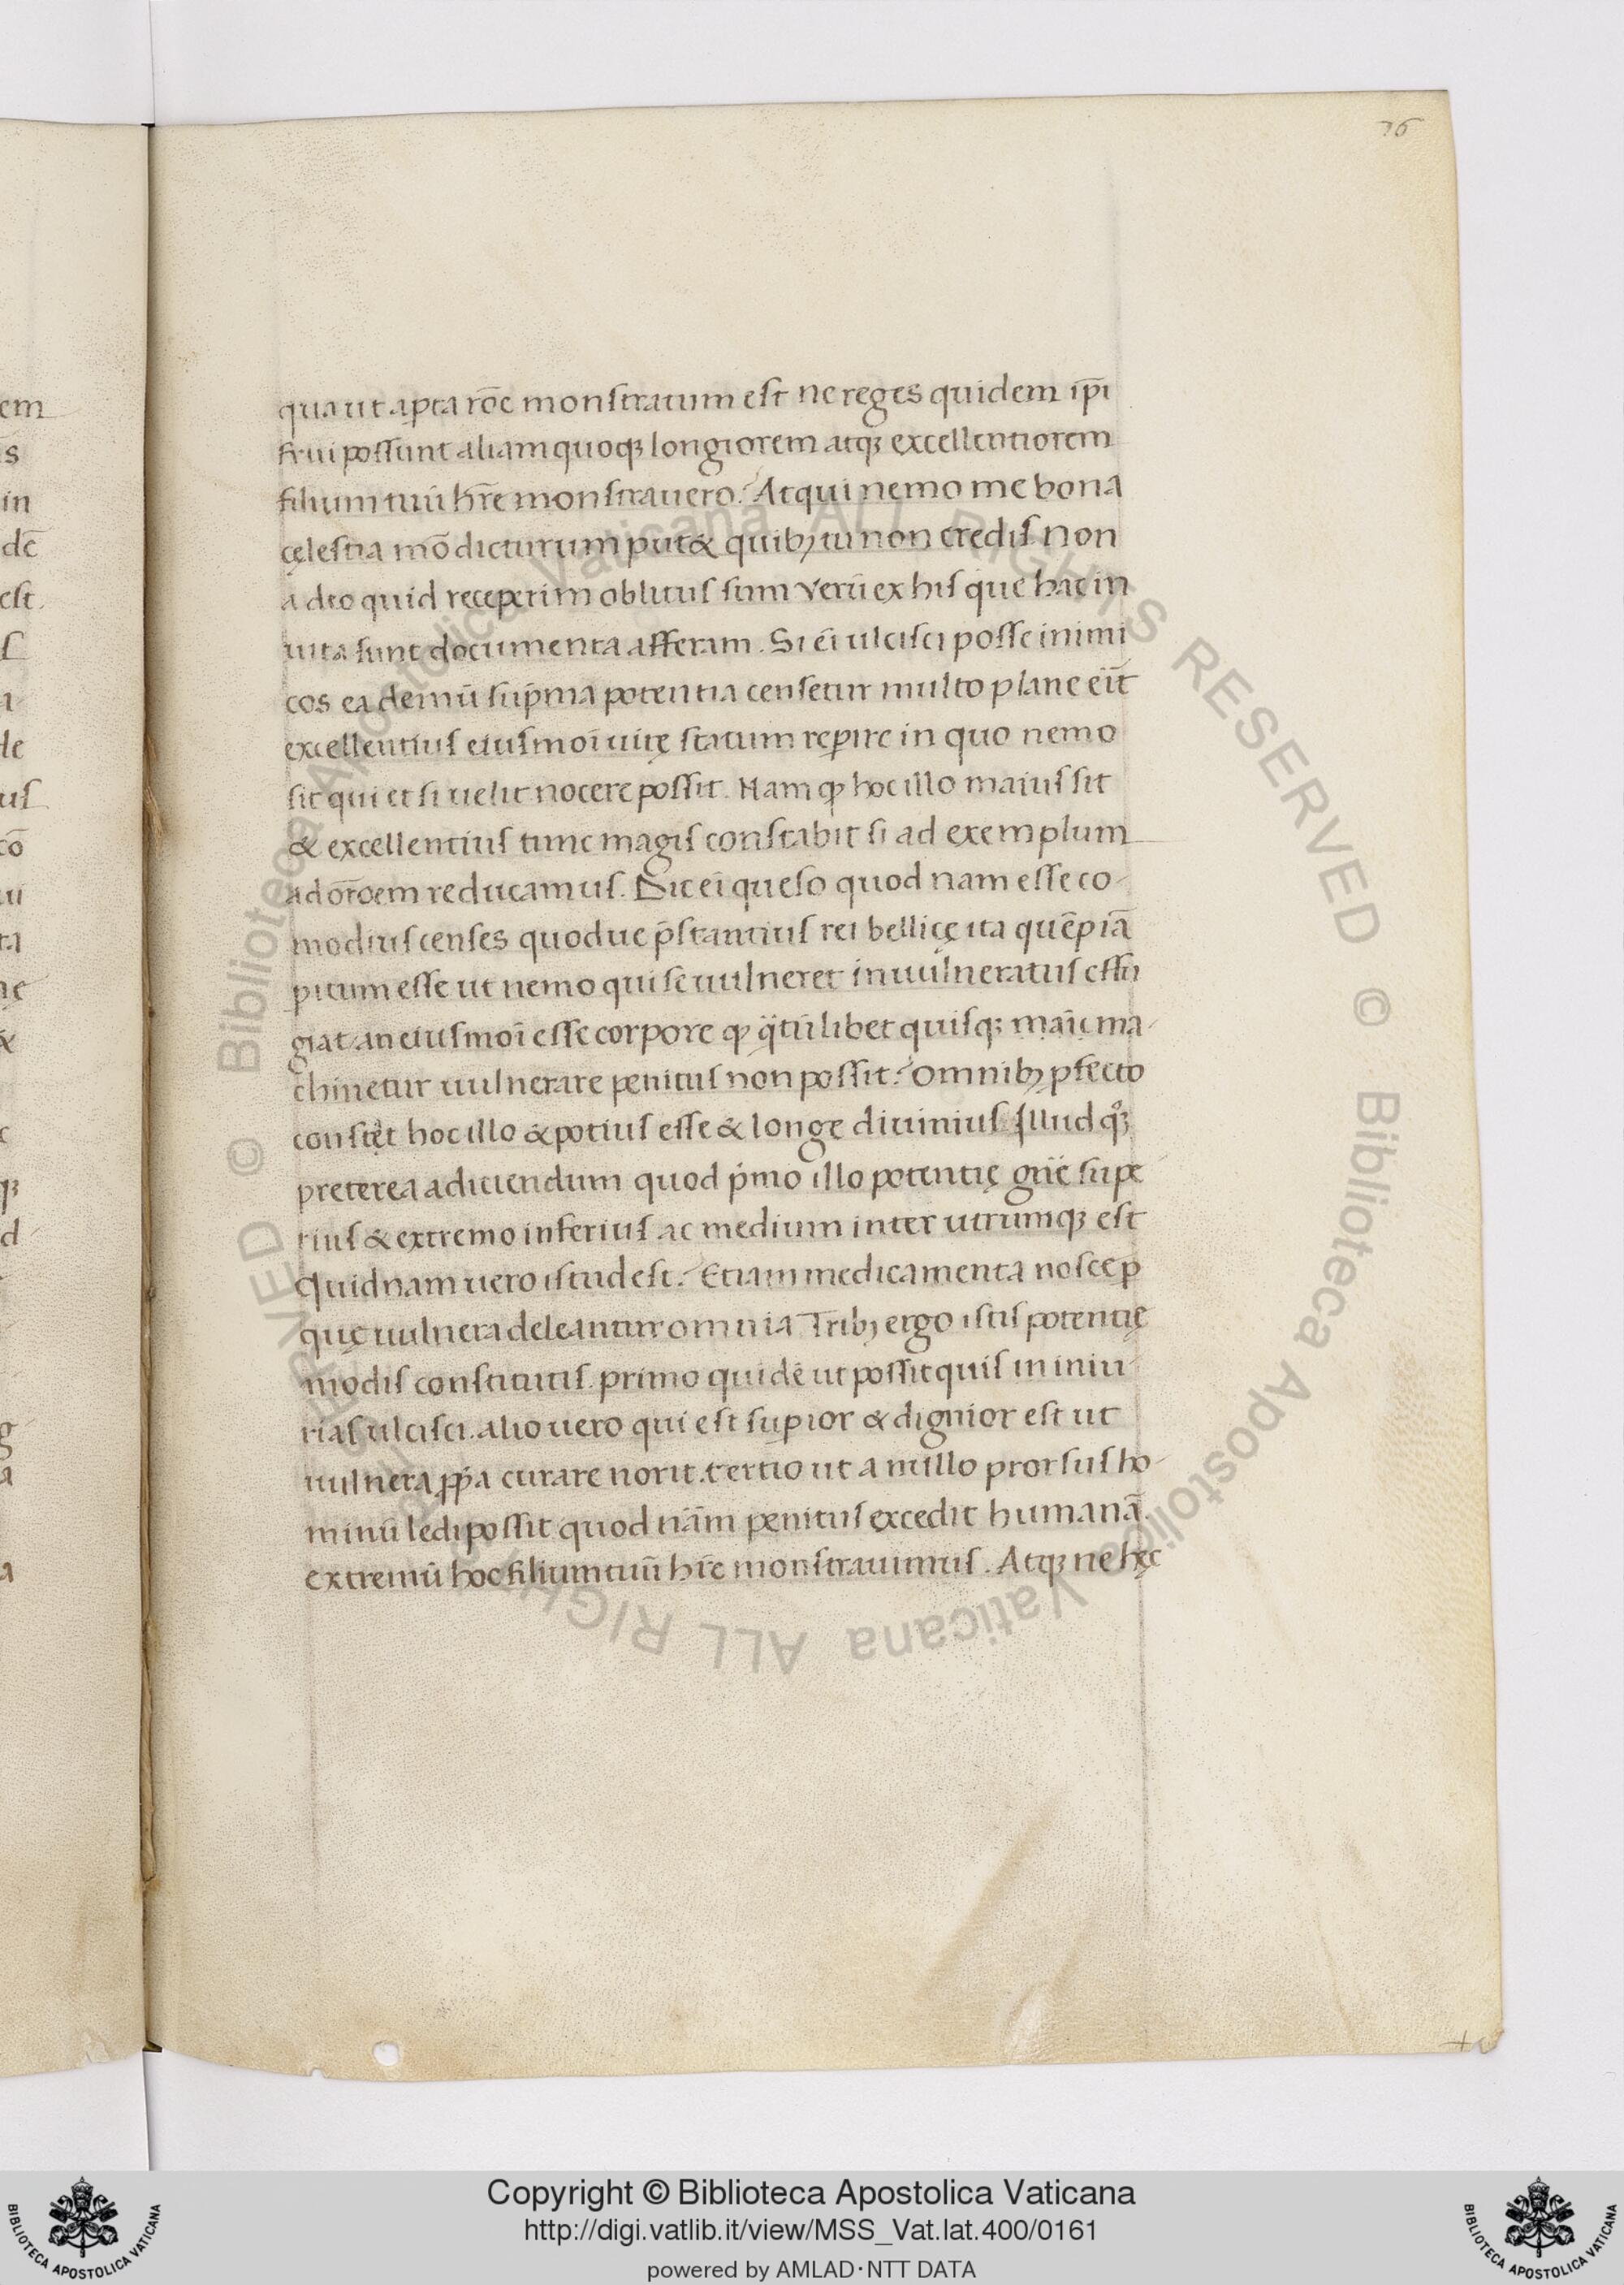 76
qua ut aꝑta rōe monstratum est ne reges quidem ip̄i
frui possunt aliam quoqꝫ longiorem atqꝫ excellentiorem
filium tuū hr̄e monstrauero? Atqui nemo me bona
cęlestia mō dicturum put& quibꝫ tu non credis non
adeo quid receperim oblitus sum Verū ex his que hac in
uita sunt documenta afferam. Si ei ulcisci posse inimi
cos ea demū sup̄ma potentia censetur multo plane eīt
excellentius eiusmoi uitę statum reꝑire in quo nemo
sit qui et si uelit nocere possit. Nam ꝙ hoc illo maius sit
& excellentius tunc magis constabit si ad exemplum
ad or̄oem reducamus. Dic ei queso quod nam esse co-
modius censes quodue p̄stantius rei bellicę ita quēpiā
pitum esse ut nemo qui se uulneret inuulneratus effu
giat/an eiusmoi esse corpore ꝙ q̈tūlibet quisqꝫ maīe ma-
chinetur uulnerare penitus non possit? Omnibꝫ ꝓfecto
constet hoc illo & potius esse & longe diuinius. Illud q°ꝫ
preterea adiciendum quod p̄mo illo potentię gn̄e supe
rius & extremo inferius ac medium inter utrumqꝫ est
Quidnam uero istud est? Etiam medicamenta nosce ꝑ
quę uulnera deleantur omnia Tribꝫ ergo istis potentię
modis constitutis. primo quidē ut possit quis in iniu-
rias ulcisci. alio uero qui est suꝑior & dignior est ut
uulnera ꝓp̄a curare norit. tertio ut a nullo prorsus ho-
minū ledi possit quod nām penitus excedit humanā.
extremū hoc filium tuū hr̄e monstrauimus. Atqꝫ ne hęc
em
is
in
dē
est.
s
a
de
us
cō
ui
ta
nę
&
c
qꝫ
d
g
a
a
© Biblioteca Apostolica Vaticana ALL RIGHTS RESERVED © Biblioteca Apostolica Vaticana ALL RIGHTS RESERVED
BIBLIOTECA APOSTOLICA VATICANA
Copyright © Biblioteca Apostolica Vaticana
http://digi.vatlib.it/view/MSS_Vat.lat.400/0161
powered by AMLAD·NTT DATA
BIBLIOTECA APOSTOLICA VATICANA